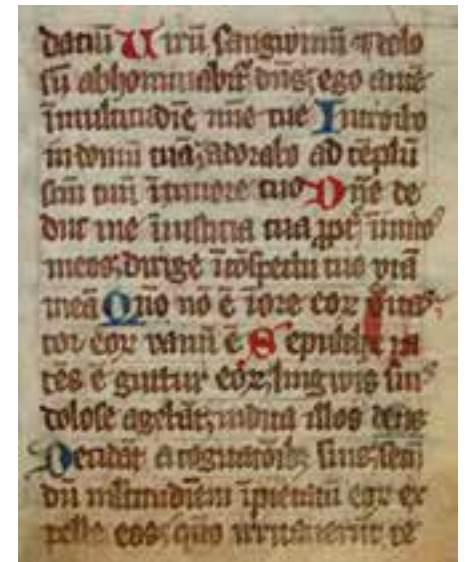 daciū Uirū sanguinū et dolo
sū abhominabit᷑ dn̄s; ego autē
ī multitudīe mīe tue Introibo
in domū tuā; adorabo ad tēplū
scm̄ tuū ī timore tuo Dn̄e de
duc me ī iusticia tua ꝓpt̄ īimicos
meos; dirige ī cōspectu tuo viā
meā Qm̄o nō ē ī ore eoꝝ ūitas;
cor eoꝝ vanū ē Sepulchrū pa
tēs ē guttur eoꝝ; linguis suis
dolose agebāt; iudica illos deus
Decidāt a cogitacōibꝫ suis; secū
dū multitudiēm īpietatū eoꝝ ex
pelle eos; qm̄o irritauerūt te